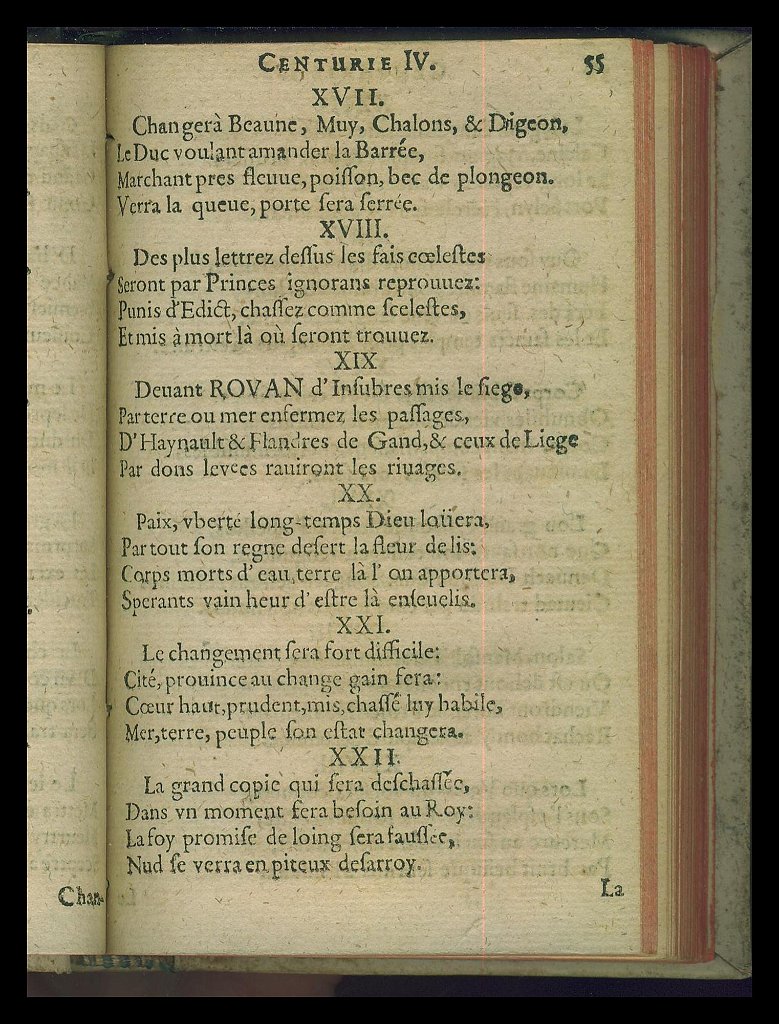 CENTURIE IV. 55
XVII.
Changerà Beaune, Muy, Chalons, & Digeon,
Le Duc voulant amander la Barrée,
Marchant pres fleuue, poiſſon, bec de plongeon.
Verra la queue, porte ſera ſerrée.
XVIII.
Des plus lettrez deſſus les fais cœleſtes
Seront par Princes ignorans reprouuez:
Punis d'Edict, chaſſez comme ſceleſtes,
Et mis à mort là où ſeront trouuez.
XIX
Deuant ROVAN d'Inſubres mis le ſiege,
Par terre ou mer enfermez les paſſages,
D'Haynault & Flandres de Gand, & ceux de Liege
Par dons levées rauiront les riuages.
XX.
Paix, vberté long-temps Dieu loüera,
Par tout ſon regne deſert la fleur de lis:
Corps morts d'eau, terre là l'on apportera,
Sperants vain heur d'eſtre là enſeuelis.
XXI.
Le changement ſera fort difficile:
Cité, prouince au change gain ſera:
Cœur haut, prudent, mis, chaſſé luy habile,
Mer, terre, peuple ſon eſtat changera.
XXII.
La grand copie qui ſera deſchaſſée,
Dans vn moment ſera beſoin au Roy:
La foy promiſe de loing ſera fauſſée,
Nud ſe verra en piteux deſarroy.
La
Chan-